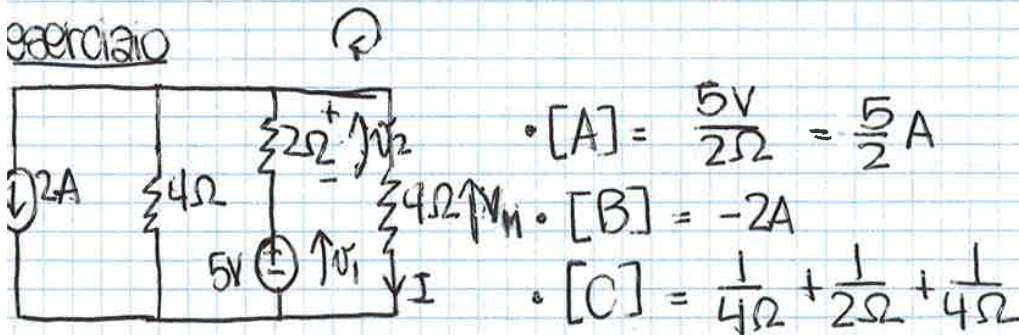 esercizio
2A
4Ω
2Ω
+
-
v₂
5V
+
-
v₁
4Ω
V_M
I
• [A] = 5V/2Ω = 5/2 A
• [B] = -2A
• [C] = 1/4Ω + 1/2Ω + 1/4Ω